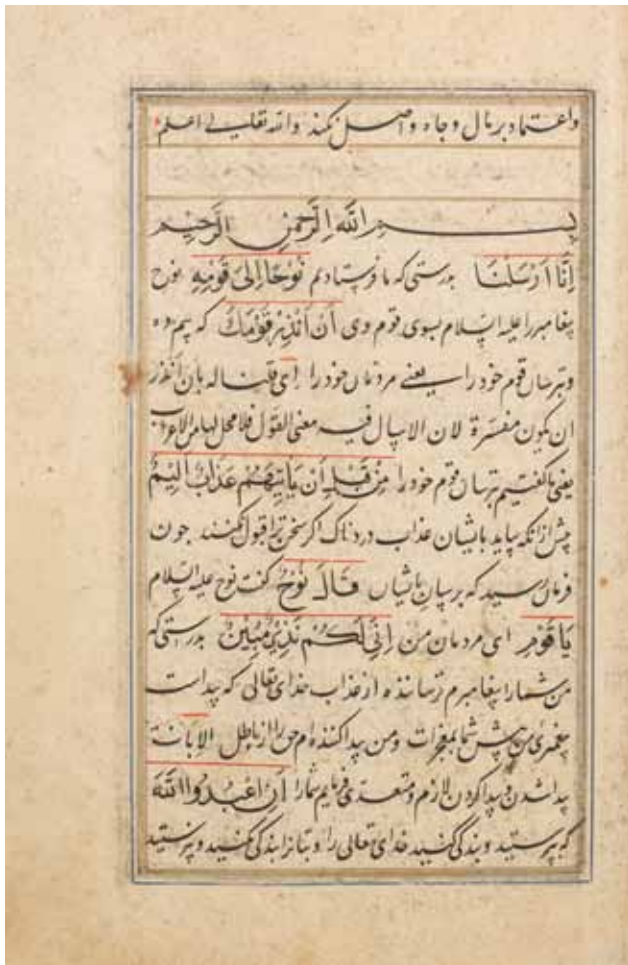 واعتماد بر مال و جاه و اصل نکند والله تعالی اعلم
بسم الله الرحمن الرحیم
اِنَّا اَرْسَلْنَا بدرستی که ما فرستادیم نُوْحًا اِلیٰ قَوْمِهٖ نوح
پیغامبر را علیه السلام بسوی قوم وی اَنْ اَنْذِرْ قَوْمَكَ که بیم ده
و بترسان قوم خود را یعنی مردمان خود را ای قلنا له بان انذر
ان یکون مفسرة لان الارسال فیه معنی القول فلا محل لها من الاعراب
یعنی ما گفتیم بترسان قوم خود را مِنْ قَبْلِ اَنْ یَاْتِیَهُمْ عَذَابٌ اَلِیْمٌ
پیش از انکه بیاید بایشان عذاب دردناک اگر سخن ترا قبول نکنند چون
فرمان رسید که برسان بایشان قَالَ نُوْحٌ گفت نوح علیه السلام
یَا قَوْمِ ای مردمان من اِنِّیْ لَكُمْ نَذِیْرٌ مُبِیْنٌ بدرستی که
من شما را پیغامبرم ترساننده از عذاب خدای تعالی که پیداست
پیغمبری من پیش شما بمعجزات ومن پیدا کننده ام حق را از باطل الابانة
پیدا شدن و پیدا کردن لازم و متعدی فرمایم شما را اَنِ اعْبُدُوا اللّٰهَ
که بپرستید و بندگی کنید خدای تعالی را و بتانرا بندگی مکنید و مپرستید